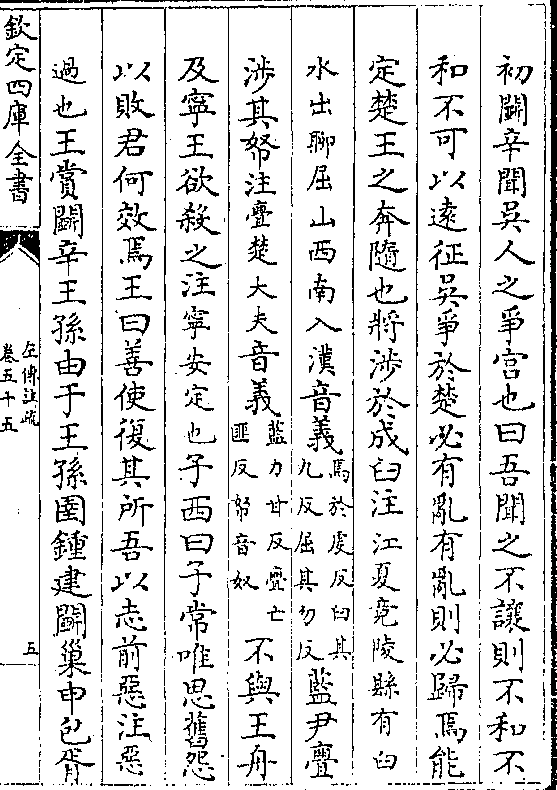 初鬬辛聞吳人之爭宫也曰吾聞之不讓則不和不
和不可以遠征吳爭於楚必有亂有亂則必歸焉能
定楚王之奔隨也將涉於成臼注江夏竟陵縣有臼
水出聊屈山西南入漢音義馬於虔反臼其九反屈其勿反藍尹亹
涉其帑注亹楚大夫音義藍力甘反亹亡匪反帑音奴不與王舟
及寧王欲殺之注寧安定也子西曰子常唯思舊怨
以敗君何效焉王曰善使復其所吾以志前惡注惡
過也王賞鬬辛王孫由于王孫圉鍾建鬬巢申包胥
欽定四庫全書
左傳注疏
卷五十五
五